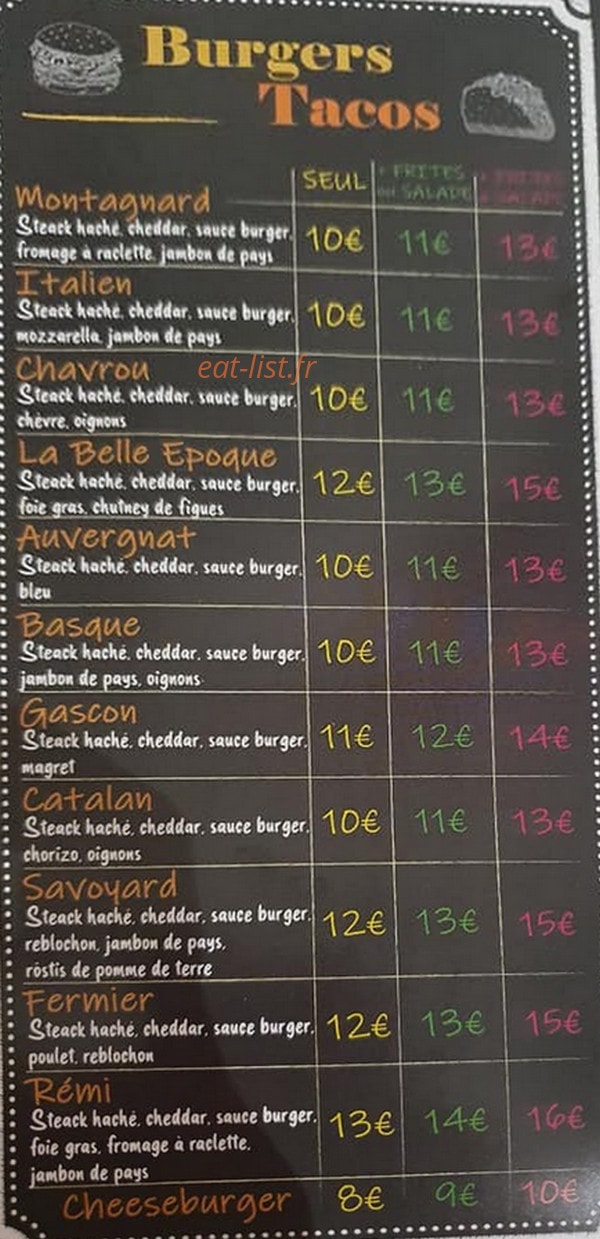 Burgers
Tacos
SEUL
+ FRITES
ou SALADE
Montagnard
Steack haché, cheddar, sauce burger,
fromage à raclette, jambon de pays
10€ 11€ 13€
Italien
Steack haché, cheddar, sauce burger,
mozzarella, jambon de pays
10€ 11€ 13€
eat-list.fr
Chavrou
Steack haché, cheddar, sauce burger,
chèvre, oignons
10€ 11€ 13€
La Belle Epoque
Steack haché, cheddar, sauce burger,
foie gras, chutney de figues
12€ 13€ 15€
Auvergnat
Steack haché, cheddar, sauce burger,
bleu
10€ 11€ 13€
Basque
Steack haché, cheddar, sauce burger,
jambon de pays, oignons
10€ 11€ 13€
Gascon
Steack haché, cheddar, sauce burger,
magret
11€ 12€ 14€
Catalan
Steack haché, cheddar, sauce burger,
chorizo, oignons
10€ 11€ 13€
Savoyard
Steack haché, cheddar, sauce burger,
reblochon, jambon de pays,
röstis de pomme de terre
12€ 13€ 15€
Fermier
Steack haché, cheddar, sauce burger,
poulet, reblochon
12€ 13€ 15€
Rémi
Steack haché, cheddar, sauce burger,
foie gras, fromage à raclette,
jambon de pays
13€ 14€ 16€
Cheeseburger 8€ 9€ 10€